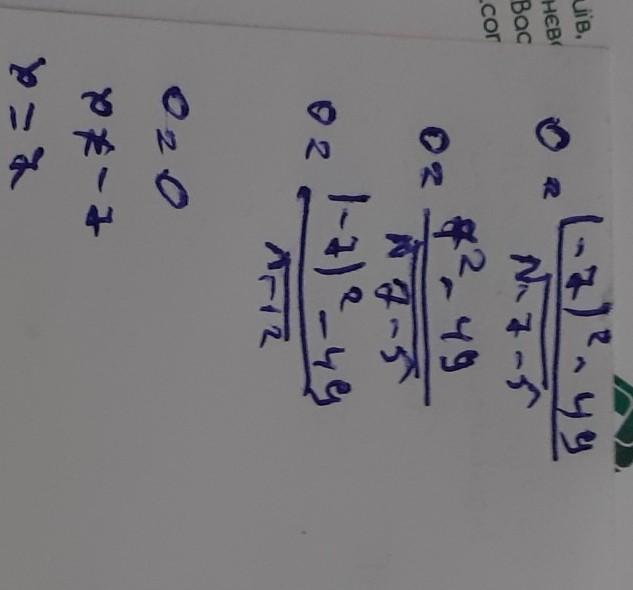 иїв,
нев
Вас
.cor
0 = \frac{(-7)^2 - 49}{\sqrt{-7-5}}
0 = \frac{7^2 - 49}{\sqrt{7-5}}
0 = \frac{(-7)^2 - 49}{\sqrt{-12}}
0 = 0
x ≠ -7
x = 7